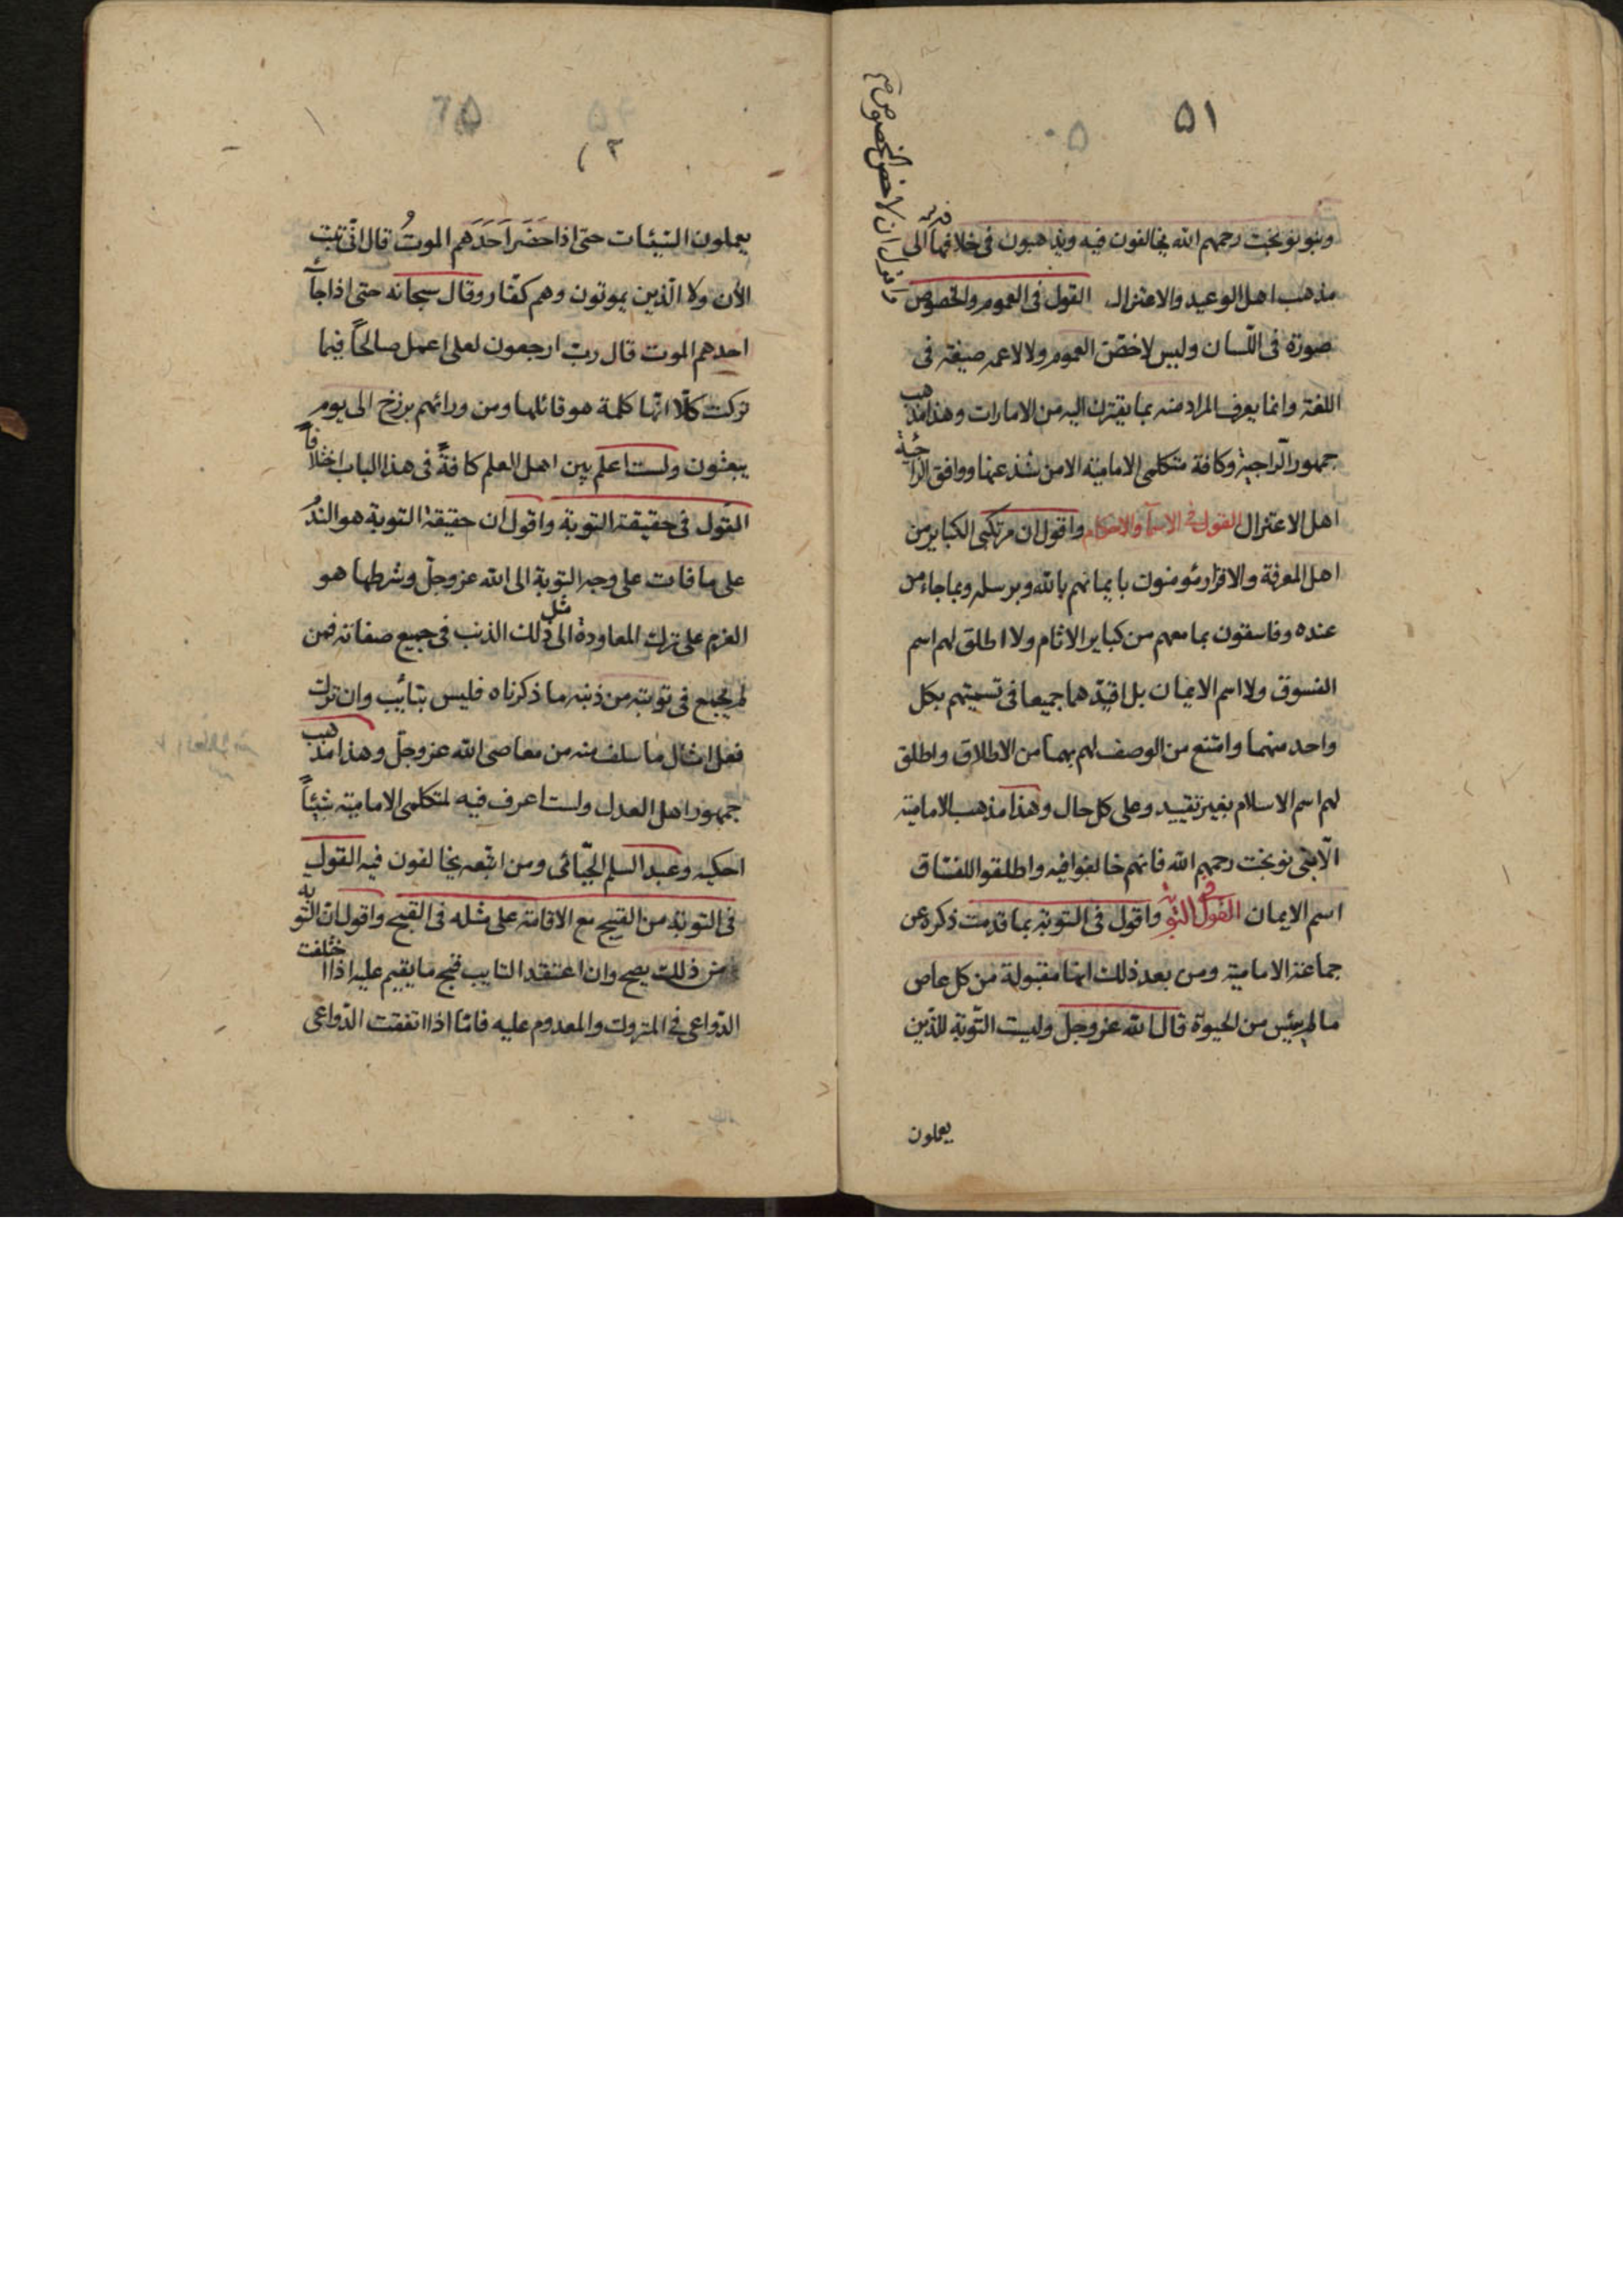 ٥١
وبنو نوبخت رحمهم الله يخالفون فيه ويذهبون في خلافهما الى
مذهب اهل الوعيد والاعتزال القول في العموم والخصوص
واقول ان لاخص الخصوص
صورة في اللسان وليس لاخص العموم ولا لاعمه صيغة في
اللغة وانما يعرف المراد منه بما يقترن اليه من الامارات وهذا مذهب
جمهور الراجية وكافة متكلمى الامامية الا من شذ عنها ووافق الراجئة
اهل الاعتزال القول في الاسماء والاحكام واقول ان مرتكبى الكباير من
اهل المعرفة والاقرار مؤمنون بايمانهم بالله وبرسله وبما جاء من
عنده وفاسقون بما معهم من كباير الاثام ولا اطلق لهم اسم
الفسوق ولا اسم الايمان بل اقيدهما جميعا في تسميتهم بكل
واحد منهما وامتنع من الوصف لهم بهما من الاطلاق واطلق
لهم اسم الاسلام بغير تقييد وعلى كل حال وهذا مذهب الامامية
الا بنى نوبخت رحمهم الله فانهم خالفوا فيه واطلقوا للفساق
اسم الايمان القول في التوبة واقول في التوبة بما قدمت ذكره عن
جماعة الامامية ومن بعد ذلك انها مقبولة من كل عاص
ما لم ييئس من الحيوة قال الله عز وجل وليست التوبة للذين
يعملون
يعملون السيئات حتى اذا حَضَرَ اَحَدَهم الموتُ قال انى تبت
الأن ولا الذين يموتون وهم كفار وقال سبحانه حتى اذا جآء
احدهم الموت قال رب ارجعون لعلى اعمل صالحاً فيما
تركت كلا انها كلمة هو قائلها ومن ورائهم برزخ الى يوم
يبعثون ولست اعلم بين اهل العلم كافةً في هذا الباب اختلافاً
القول في حقيقة التوبة واقول ان حقيقة التوبة هو الندم
على ما فات على وجه التوبة الى الله عز وجل وشرطها هو
العزم على ترك المعاودة الى مثل ذلك الذنب في جميع صفاته فمن
لم يجمع في توبته من ذنبه ما ذكرناه فليس بتائب وان ترك
فعل امثال ما سلف منه من معاصى الله عز وجل وهذا مذهب
جمهور اهل العدل ولست اعرف فيه لمتكلمى الامامية شيئاً
احكيه وعبد السلم الجبائى ومن اتبعه يخالفون فيه القول
في التوبة من القبيح مع الاقامة على مثله في القبح واقول ان التوبة
من ذلك يصح وان اعتقد التايب قبح ما يقيم عليه اذا اختلفت
الدواعى في المتروك والمعدوم عليه فاما اذا اتفقت الدواعى